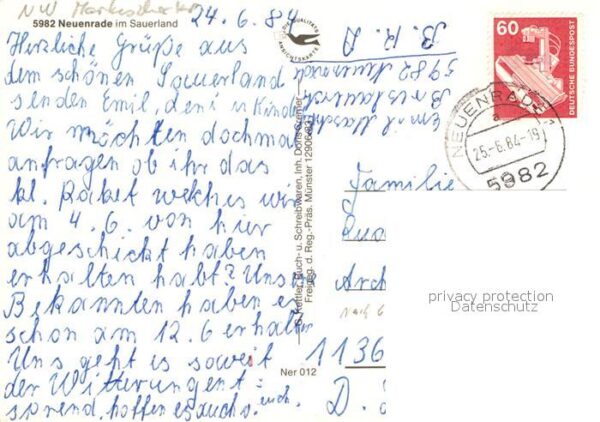 NW
5982 Neuenrade im Sauerland
24.6.84
Herzliche Grüße aus
dem schönen Sauerland
senden Emil, Leni u. Kinder
Wir möchten dochmal
anfragen ob ihr das
kl. Paket welches wir
am 4.6. von hier
abgeschickt haben
erhalten habt? Unsre
Bekannten haben es
schon am 12.6 erhalten
Uns geht es soweit
der Witterung ent=
sprend, hoffen es auch v. euch.
B.R.D
5982 Neuenrade
Emil
Kettler, Buch- u. Schreibwaren, Inh. Doris Cremer
Freigeg. d. Reg.-Präs. Münster
Ner 012
60
DEUTSCHE BUNDESPOST
NEUENRADE
a
25.-6.84-19
5982
Familie
Arch
nach 6
1136
D.
privacy protection
Datenschutz